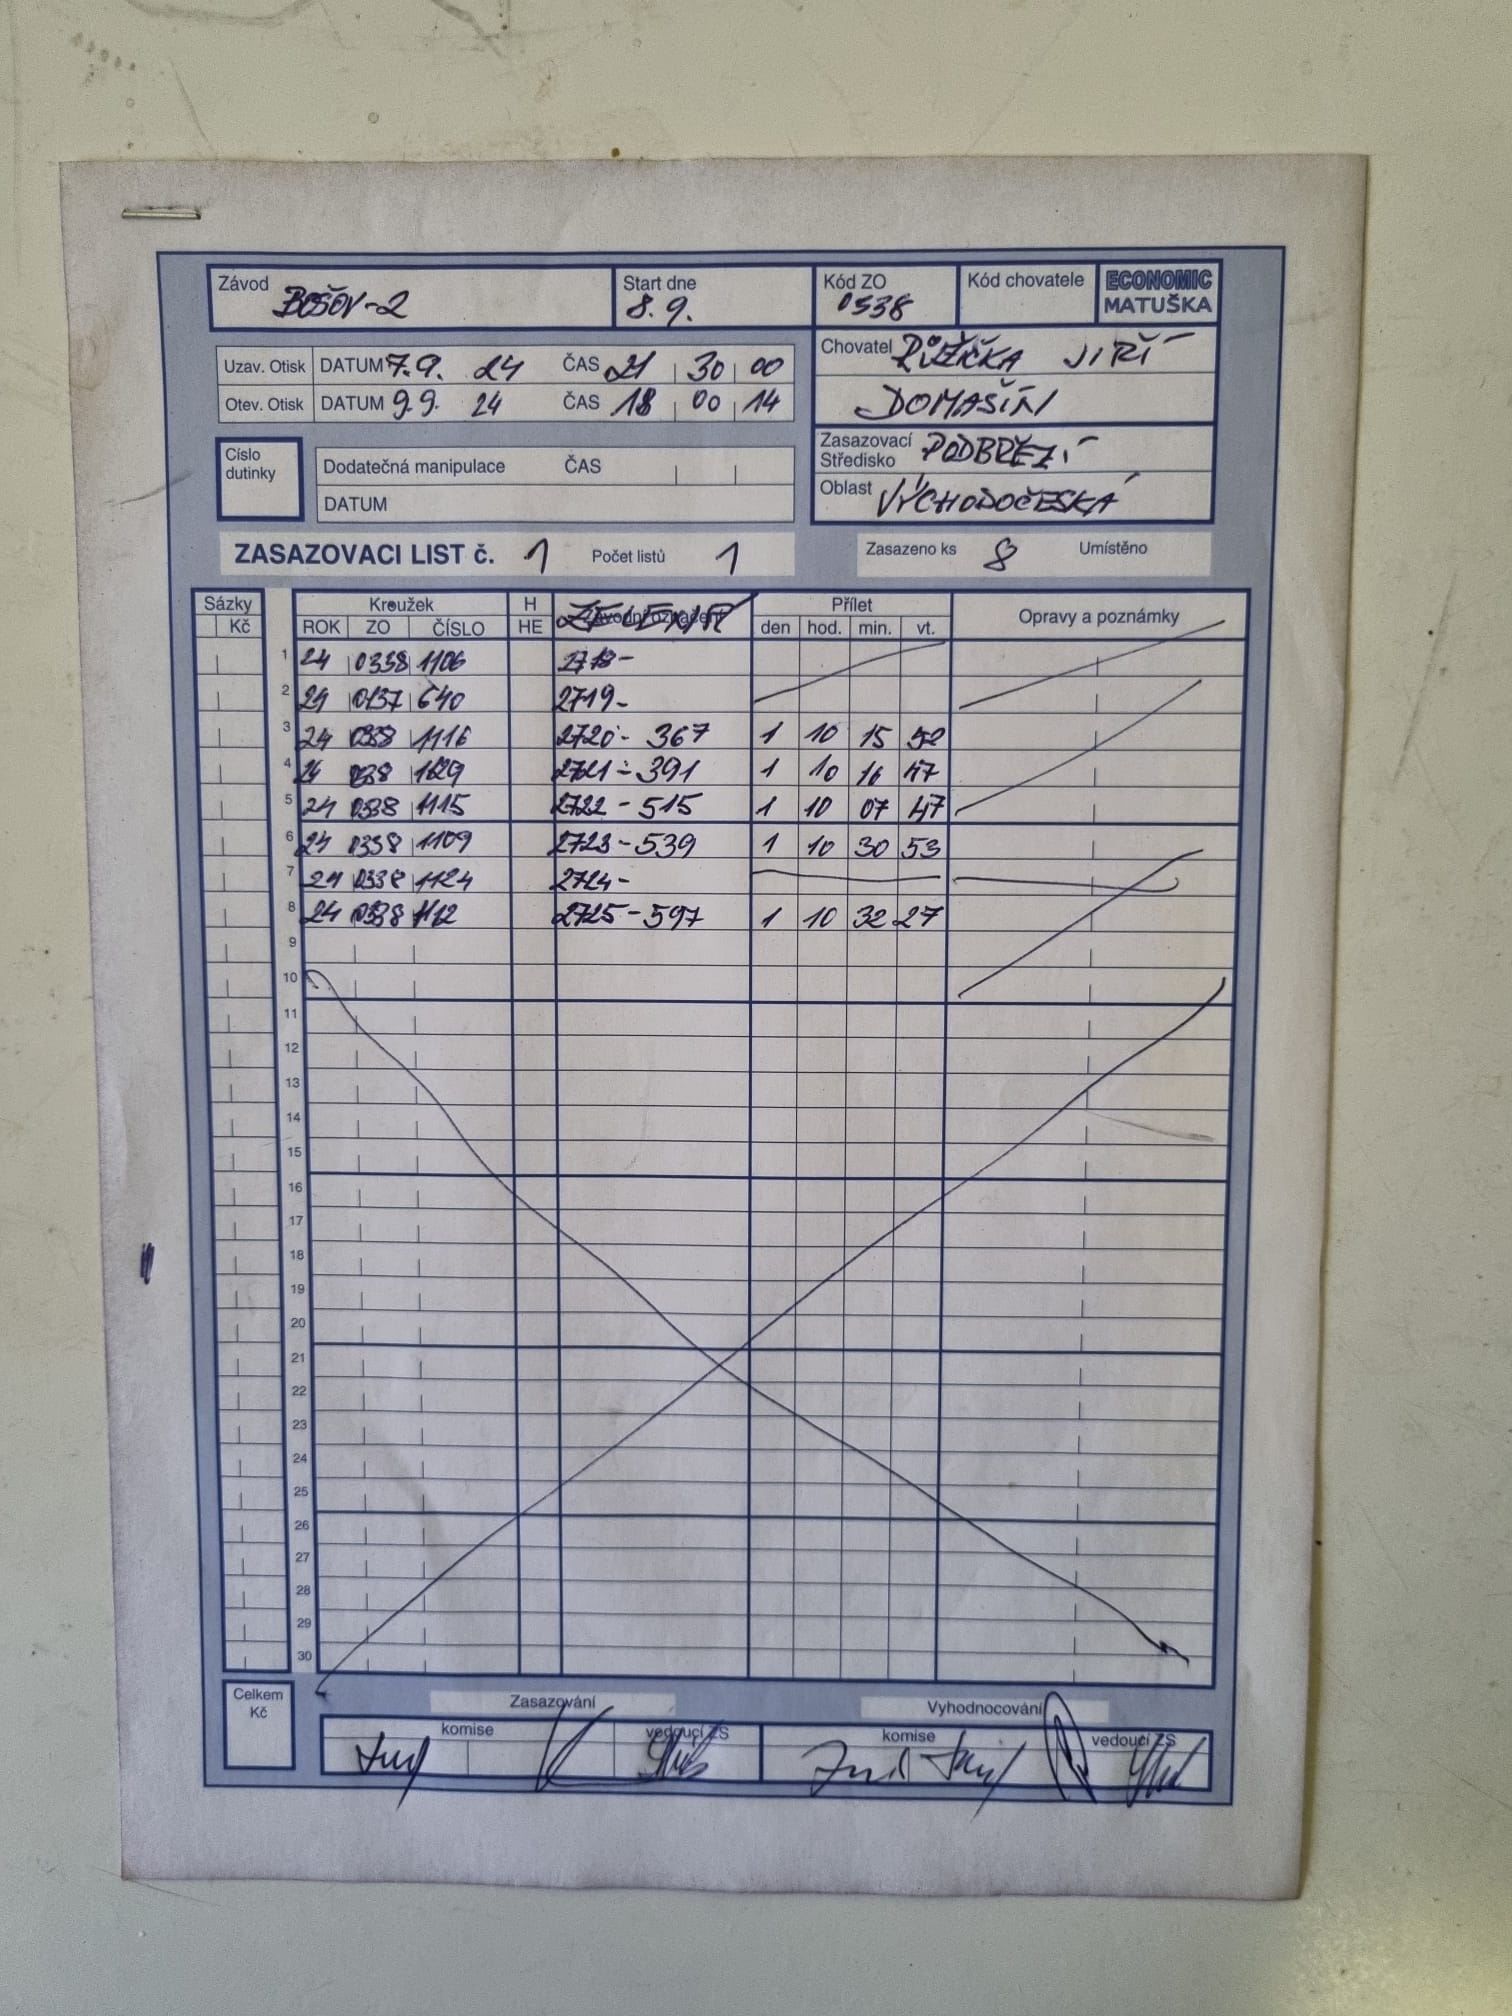 Závod BOŠOV-2 Start dne 8.9. Kód ZO 0338 Kód chovatele ECONOMIC MATUŠKA
Uzav. Otisk DATUM 7.9. 24 ČAS 21 30 00
Otev. Otisk DATUM 9.9. 24 ČAS 18 00 14
Chovatel RŮŽIČKA JIŘÍ
DOMAŠÍN
Číslo dutinky
Dodatečná manipulace ČAS
DATUM
Zasazovací Středisko PODBŘEZÍ
Oblast VÝCHODOČESKÁ
ZASAZOVACI LIST č. 1 Počet listů 1 Zasazeno ks 8 Umístěno
Sázky Kroužek H Přílet Opravy a poznámky
Kč ROK ZO ČÍSLO HE den hod. min. vt.
1 24 0338 1106 2718-
2 24 0137 640 2719-
3 24 0338 1116 2720- 367 1 10 15 52
4 24 0338 1129 2721- 391 1 10 16 47
5 24 0338 1115 2722 - 515 1 10 07 47
6 24 0338 1109 2723 - 539 1 10 30 53
7 24 0338 1124 2724-
8 24 0338 1112 2725 - 597 1 10 32 27
9
10
11
12
13
14
15
16
17
18
19
20
21
22
23
24
25
26
27
28
29
30
Celkem Kč
Zasazování Vyhodnocování
komise vedoucí ZS komise vedoucí ZS